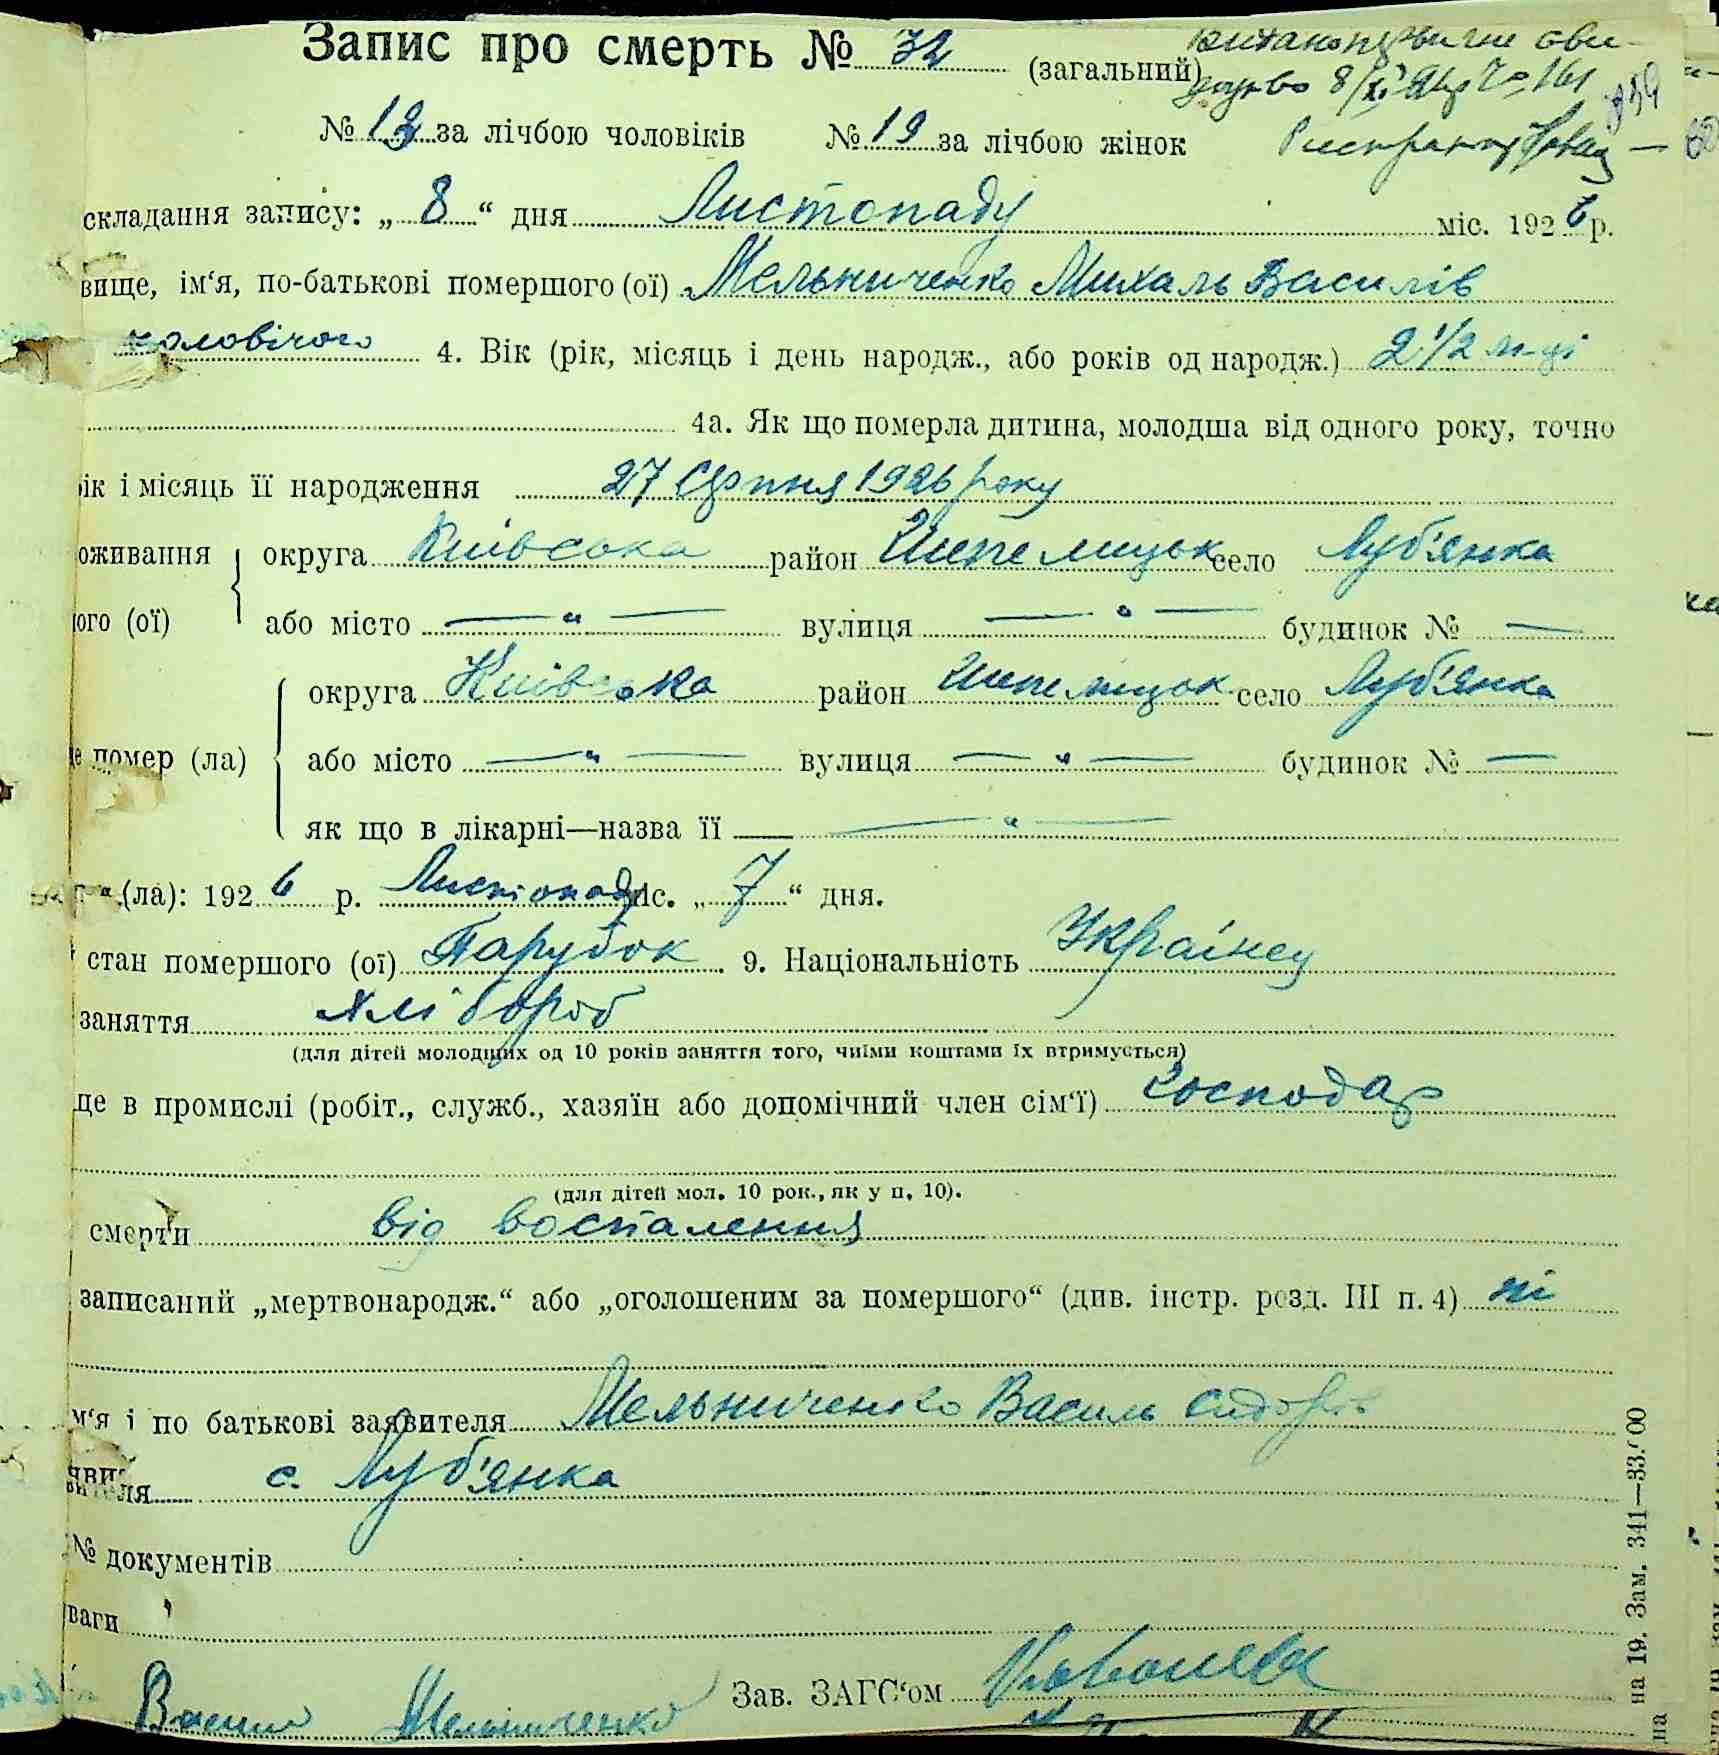 Запис про смерть № 32 (загальний)
№ 13 за лічбою чоловіків № 19 за лічбою жінок
складання запису: „ 8 “ дня Листопаду міс. 1926 р.
вище, ім‘я, по-батькові помершого (ої) Мельниченко Михаль Василів
чоловічого 4. Вік (рік, місяць і день народж., або років од народж.) 2 1/2 м-ці
4а. Як що померла дитина, молодша від одного року, точно
ік і місяць її народження 27 Серпня 1926 року
оживання округа Київська район Шепелицьк село Луб'янка
ого (ої) або місто — „ — вулиця — „ — будинок № —
округа Київська район Шепелицьк село Луб'янка
е помер (ла) або місто — „ — вулиця — „ — будинок № —
як що в лікарні—назва її — „ —
(ла): 1926 р. Листопаду міс. „ 7 “ дня.
стан помершого (ої) Парубок 9. Національність Українец
заняття Хлібороб
(для дітей молодших од 10 років заняття того, чиїми коштами їх втримується)
ще в промислі (робіт., служб., хазяїн або допомічний член сім‘ї) Господар
(для дітей мол. 10 рок., як у п. 10).
смерти від воспалення
записаний „мертвонародж.“ або „оголошеним за помершого“ (див. інстр. розд. III п. 4) ні
м‘я і по батькові заявителя Мельниченко Василь Сидорів
вителя с. Луб'янка
№ документів
ваги
Василь Мельниченко Зав. ЗАГС‘ом
на 19. Зам. 341—33.000